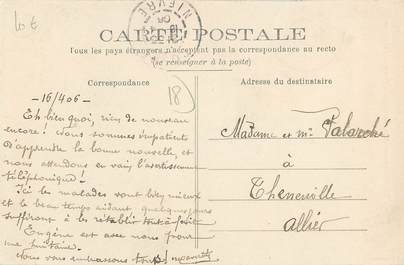 10 €
NIÈVRE
CARTE POSTALE
Tous les pays étrangers n'acceptent pas la correspondance au recto
(se renseigner à la poste)
Correspondance
Adresse du destinataire
18
-16/4 06-
Eh bien quoi, rien de nouveau
encore! Nous sommes impatients
d'apprendre la bonne nouvelle, et
nous attendons en vain l'avertissement
téléphonique!
Ici les malades vont bien mieux
et le beau temps aidant quelques jours
suffiront à les rétablir tout à fait
Eugène est avec nous pour
une huitaine.
Nous vous embrassons tous
Madame et Mr
à
Theneuille
Allier